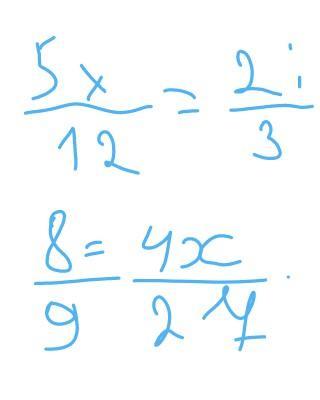 5x/12 = 2/3;
8/9 = 4x/27.